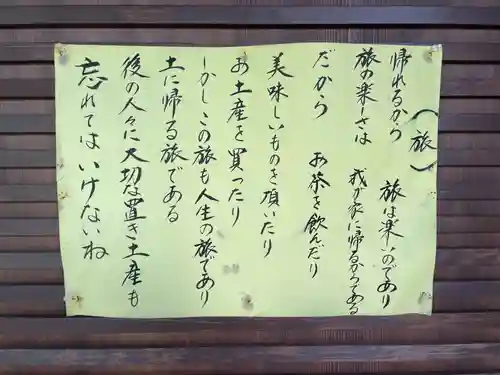 （旅）
帰れるから　旅は楽いのであり
旅の楽しさは　我が家に帰るからである
だから　お茶を飲んだり
美味しいものを頂いたり
お土産を買ったり
しかしこの旅も人生の旅であり
土に帰る旅である
後の人々に大切な置き土産も
忘れてはいけないね